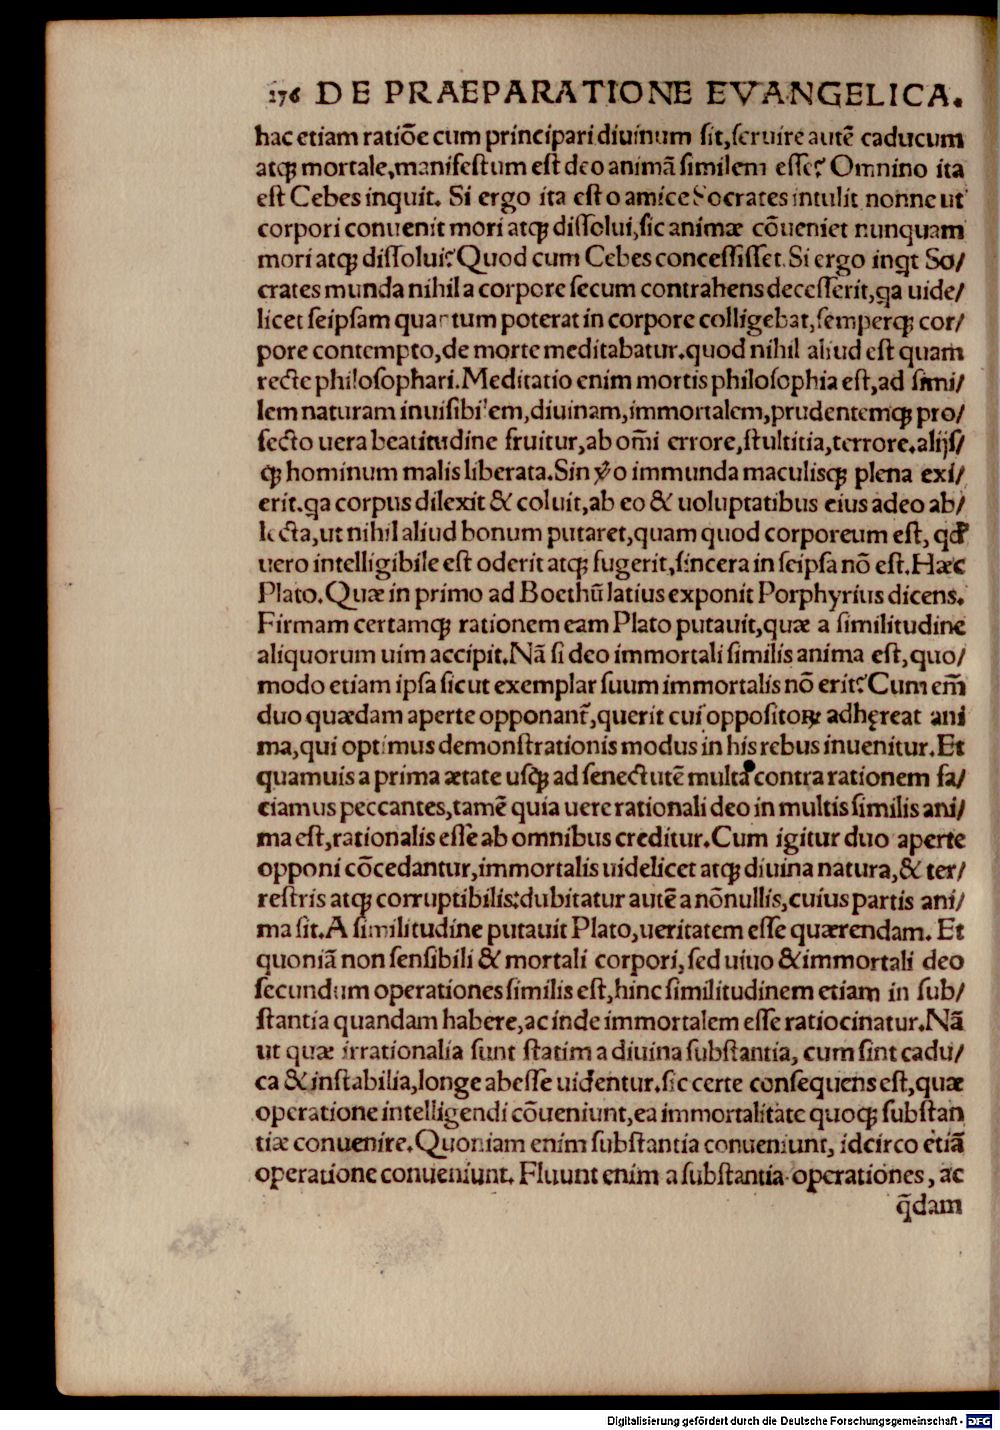 276 DE PRAEPARATIONE EVANGELICA.
hac etiam ratiõe cum principari diuinum sit, seruire autẽ caducum
atqꝫ mortale, manifestum est deo animã similem esse? Omnino ita
est Cebes inquit. Si ergo ita est o amice Socrates intulit nonne ut
corpori conuenit mori atqꝫ dissolui, sic animæ cõueniet nunquam
mori atqꝫ dissolui? Quod cum Cebes concessisset. Si ergo inqt So/
crates munda nihil a corpore secum contrahens decesserit, qa uide/
licet seipsam quantum poterat in corpore colligebat, semperqꝫ cor/
pore contempto, de morte meditabatur. quod nihil aliud est quam
recte philosophari. Meditatio enim mortis philosophia est, ad simi/
lem naturam inuisibilem, diuinam, immortalem, prudentemqꝫ pro/
fecto uera beatitudine fruitur, ab om̃i errore, stultitia, terrore. alijs/
qꝫ hominum malis liberata. Sin ꝟo immunda maculisqꝫ plena exi/
erit. qa corpus dilexit & coluit, ab eo & uoluptatibus eius adeo ab/
lecta, ut nihil aliud bonum putaret, quam quod corporeum est, qđ
uero intelligibile est oderit atqꝫ fugerit, sincera in seipsa nõ est. Hæc
Plato. Quæ in primo ad Boethũ latius exponit Porphyrius dicens.
Firmam certamqꝫ rationem eam Plato putauit, quæ a similitudine
aliquorum uim accipit. Nã si deo immortali similis anima est, quo/
modo etiam ipsa sicut exemplar suum immortalis nõ erit? Cum em̃
duo quædam aperte opponant᷑, querit cui oppositoꝝ adhęreat ani
ma, qui optimus demonstrationis modus in his rebus inuenitur. Et
quamuis a prima ætate usqꝫ ad senectutẽ multa contra rationem fa/
ciamus peccantes, tamẽ quia uere rationali deo in multis similis ani/
ma est, rationalis esse ab omnibus creditur. Cum igitur duo aperte
opponi cõcedantur, immortalis uidelicet atqꝫ diuina natura, & ter/
restris atqꝫ corruptibilis: dubitatur autẽ a nõnullis, cuius partis ani/
ma sit. A similitudine putauit Plato, ueritatem esse quærendam. Et
quoniã non sensibili & mortali corpori, sed uiuo & immortali deo
secundum operationes similis est, hinc similitudinem etiam in sub/
stantia quandam habere, ac inde immortalem esse ratiocinatur. Nã
ut quæ irrationalia sunt statim a diuina substantia, cum sint cadu/
ca & instabilia, longe abesse uidentur. sic certe consequens est, quæ
operatione intelligendi cõueniunt, ea immortalitate quoqꝫ substan
tiæ conuenire. Quoniam enim substantia conueniunt, idcirco etiã
operatione conueniunt. Fluunt enim a substantia operationes, ac
q̃dam
Digitalisierung gefördert durch die Deutsche Forschungsgemeinschaft - DFG